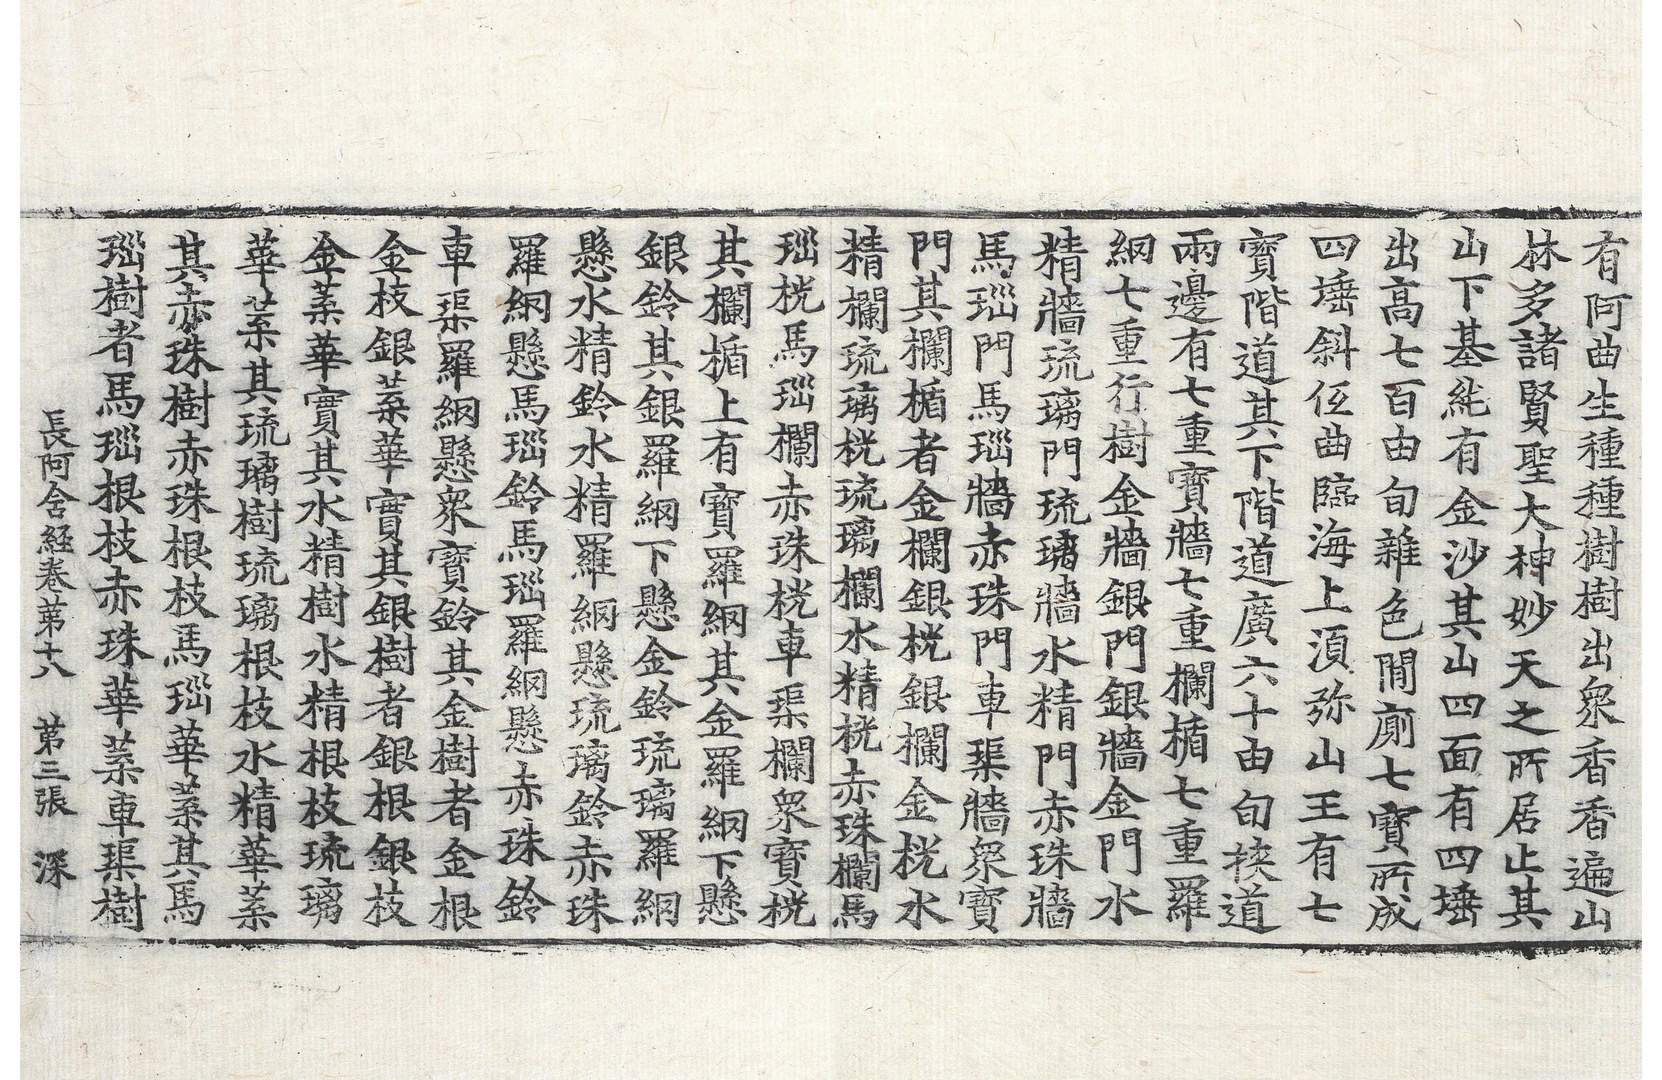 有阿曲生種種樹樹出衆香香遍山
林多諸賢聖大神妙天之所居止其
山下基純有金沙其山四面有四埵
出高七百由旬雜色間廁七寶所成
四埵斜伍曲臨海上湏弥山王有七
寶階道其下階道廣六十由旬挾道
兩邊有七重寶牆七重欄楯七重羅
網七重行樹金牆銀門銀牆金門水
精牆琉璃門琉璃牆水精門赤珠牆
馬瑙門馬瑙牆赤珠門車渠牆衆寶
門其欄楯者金欄銀桄銀欄金桄水
精欄琉璃桄琉璃欄水精桄赤珠欄馬
瑙桄馬瑙欄赤珠桄車渠欄衆寶桄
其欄楯上有寶羅網其金羅網下懸
銀鈴其銀羅網下懸金鈴琉璃羅網
懸水精鈴水精羅網懸琉璃鈴赤珠
羅網懸馬瑙鈴馬瑙羅網懸赤珠鈴
車渠羅網懸衆寶鈴其金樹者金根
金枝銀葉華實其銀樹者銀根銀枝
金葉華實其水精樹水精根枝琉璃
華葉其琉璃樹琉璃根枝水精華葉
其赤珠樹赤珠根枝馬瑙華葉其馬
瑙樹者馬瑙根枝赤珠華葉車渠樹
長阿含經卷第十八 第三張 深